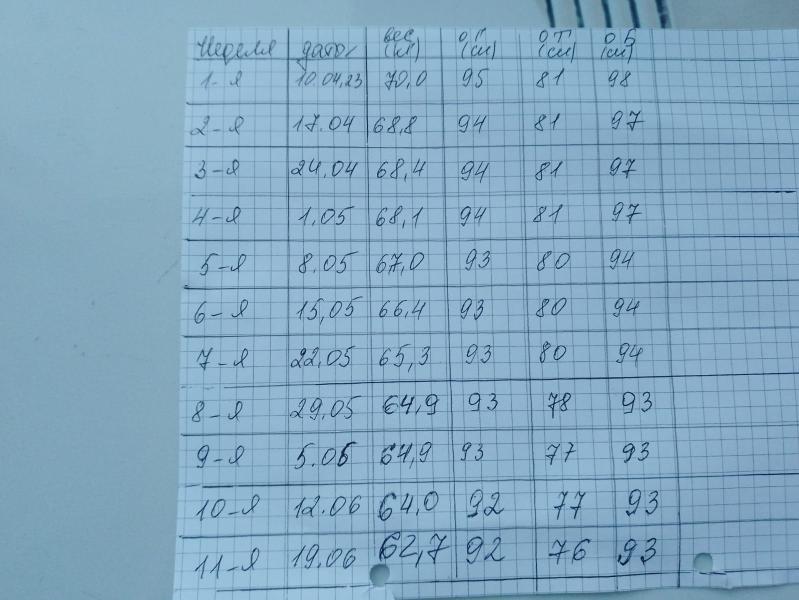 Неделя дата вес (кг) О Г (см) О Т (см) О Б (см)
1-я 10.04.23 70,0 95 81 98
2-я 17.04 68,8 94 81 97
3-я 24.04 68,4 94 81 97
4-я 1.05 68,1 94 81 97
5-я 8.05 67,0 93 80 94
6-я 15,05 66,4 93 80 94
7-я 22.05 65,3 93 80 94
8-я 29,05 64,9 93 78 93
9-я 5.06 64,9 93 77 93
10-я 12.06 64,0 92 77 93
11-я 19.06 62,7 92 76 93